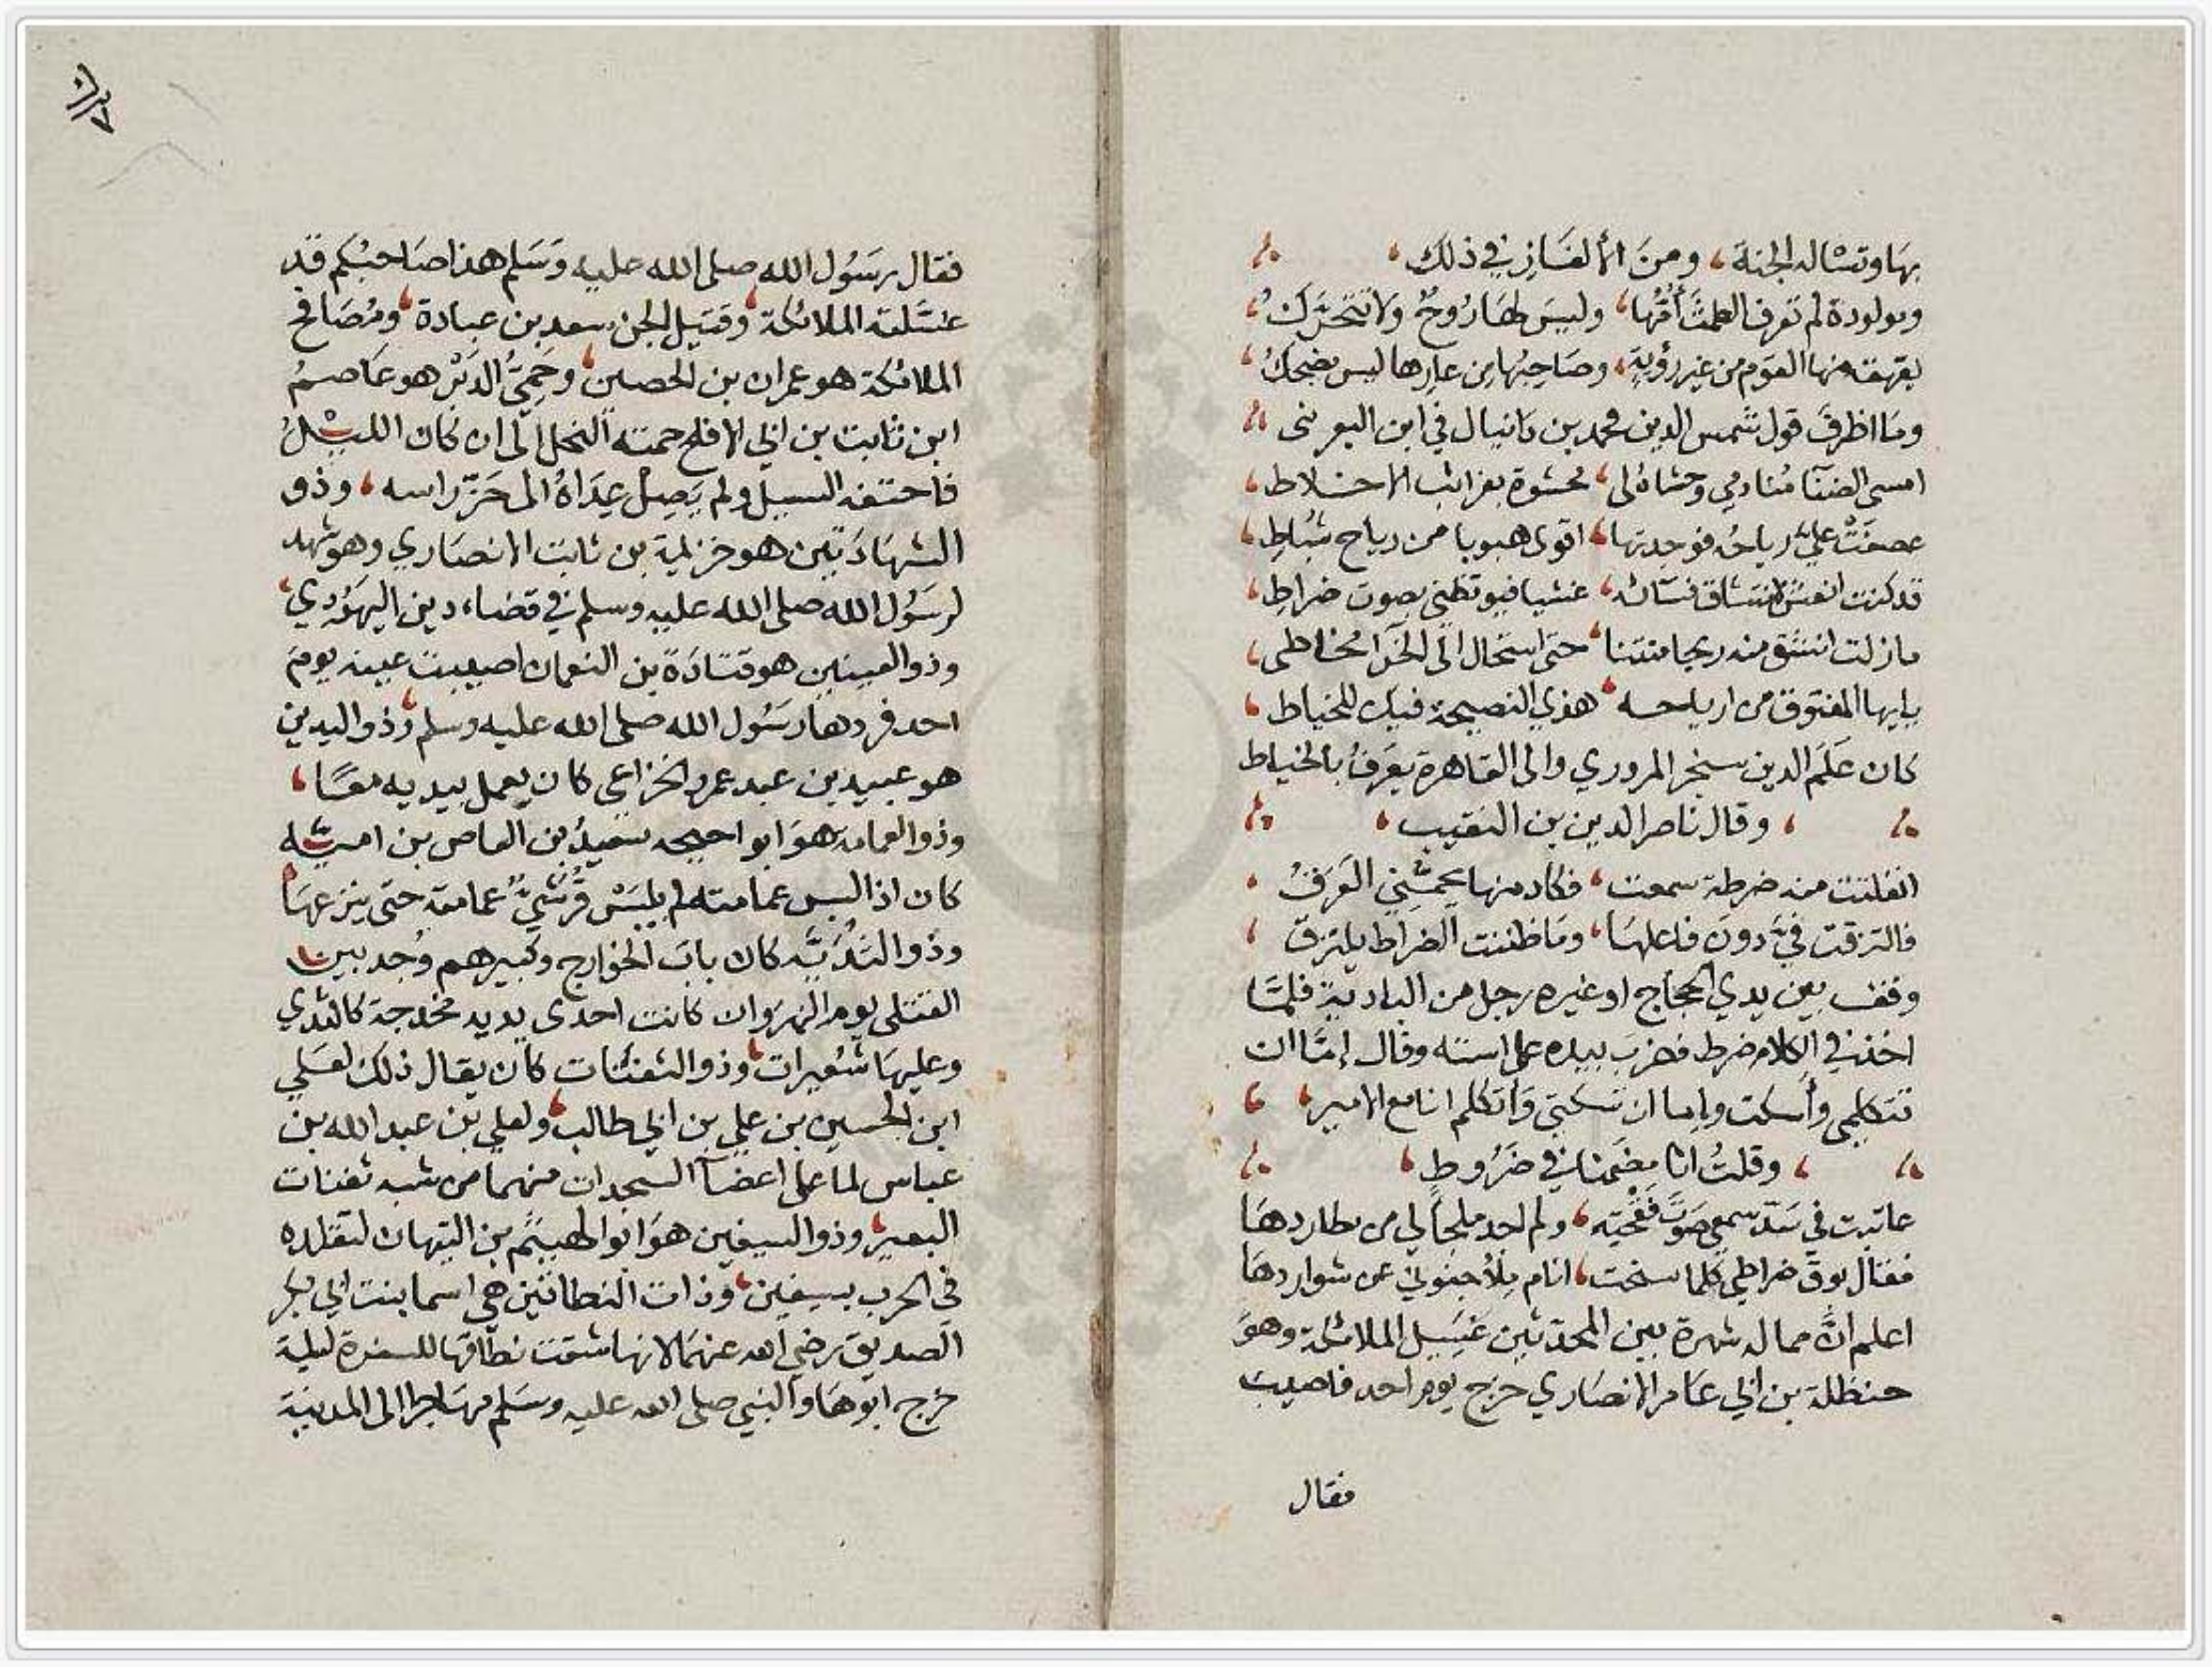 بها وتساله الجنة، ومن الالغاز في ذلك،
ومولودة لم تعرف الطمث أمّها، وليس لها روحٌ ولا تتحرّكُ،
يقهقه منها القوم من غير رؤية، وصاحبها من عارها ليس يضحكُ،
وما اظرف قول شمس الدين محمد بن دانيال في ابن اليعربني
امسى الضنا منادمي وحشاهُ لي، محشوة بغرائب الاخلاط،
عصفت عليّ رياحه فوجدتها، اقوى هبوبا من رياح شباط،
قد كنت انعش انتشاق فسائه، غشيا فيوقظني بصوت ضراط،
مازلت انتشق منه ريحا منتنا، حتى استحال الى الخرا مخاطي،
يا ايها المفتوق من ارياحه، هذي النصيحة فيك للخياط،
كان عَلَم الدين سنجر المروري والى القاهرة يعرفُ بالخياط
، وقال ناصر الدين بن النقيب،
انفلتت منه ضرطة سمعت، فكاد منها يحمشني العرقُ،
فالتزقت فيّ دون فاعلها، وما ظننت الضراط يلتزق،
وقف بين يدي الحجاج او غيره رجل من البادية فلمّا
اخذ في الكلام ضرط فضرب بيده على استه وقال إمّا ان
تتكلمي وأسكت واما ان تسكتي وأتكلم انا مع الامير،
، وقلتُ انا مضمنا في ضروط،
عاتبت في سدّ سمعي صوت فقحته، ولم اجد ملجأ لي من مطاردها
فقال بوق ضراطي كلما سنحت، انام ملأ جفوني عن شواردها
اعلم انّ مما له شهرة بين المحدثين غسيل الملائكة وهو
حنظلة بن ابي عامر الانصاري خرج يوم احد فاصيب
فقال
فقال رسول الله صلى الله عليه وسلم هذا صاحبكم قد
غسّلته الملائكة، وقتيل الجن سعد بن عبادة، ومُصافح
الملائكة هو عمران بن الحصين، وحَمِيُّ الدَبْر هو عاصمُ
ابن ثابت بن ابي الافلح حمته النحل الى ان كان الليلُ
فاحتفه السيل ولم يَصِلْ عِدَاهُ الى حَزّ راسه، وذو
الشهادَتين هو خزيمة بن ثابت الانصاري وهو شهد
لرسول الله صلى الله عليه وسلم في قضاء دين اليهودي،
وذو العينين هو قتادة بن النعمان اصيبت عينه يوم
احد فردها رسول الله صلى الله عليه وسلم، وذو اليدين
هو عبيد بن عبد عمرو الخزاعي كان يعمل بيديه معًا،
وذو العمامه هو ابو احيحه سعيدُ بن العاص بن اميّه
كان اذا لبس عمامته لم يلبَسْ قُرَشيٌّ عمامة حتى ينزعها،
وذو الثُدَيّه كان باب الخوارج وكبيرهم وُجد بين
القتلى يوم النهروان كانت احدى يديه مخدجة كالثدي
وعليها شُعيرات، وذو الثفنات كان يقال ذلك لعلي
ابن الحسين بن علي بن ابي طالب، ولعلي بن عبد الله بن
عباس لما على اعضآ السجدات منهما من شبه ثفنات
البعير، وذو السيفين هو ابو الهيثم بن التيهان لتقلده
في الحرب بسيفين، وذات النطاقين هي اسما بنت ابي بكر
الصديق رضي الله عنهما لانها شقت نطاقها للسفرة ليلة
خرج ابوها والنبي صلى الله عليه وسلم مهاجرا الى المدينة